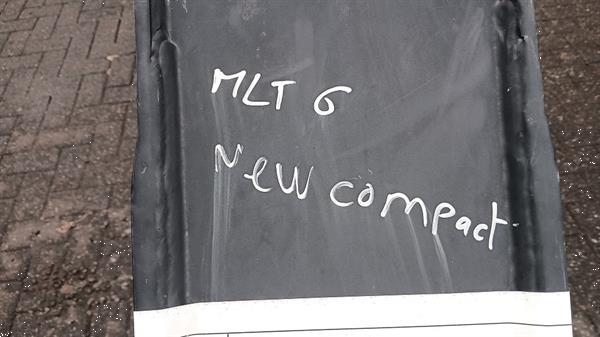 MLT 6
New compact